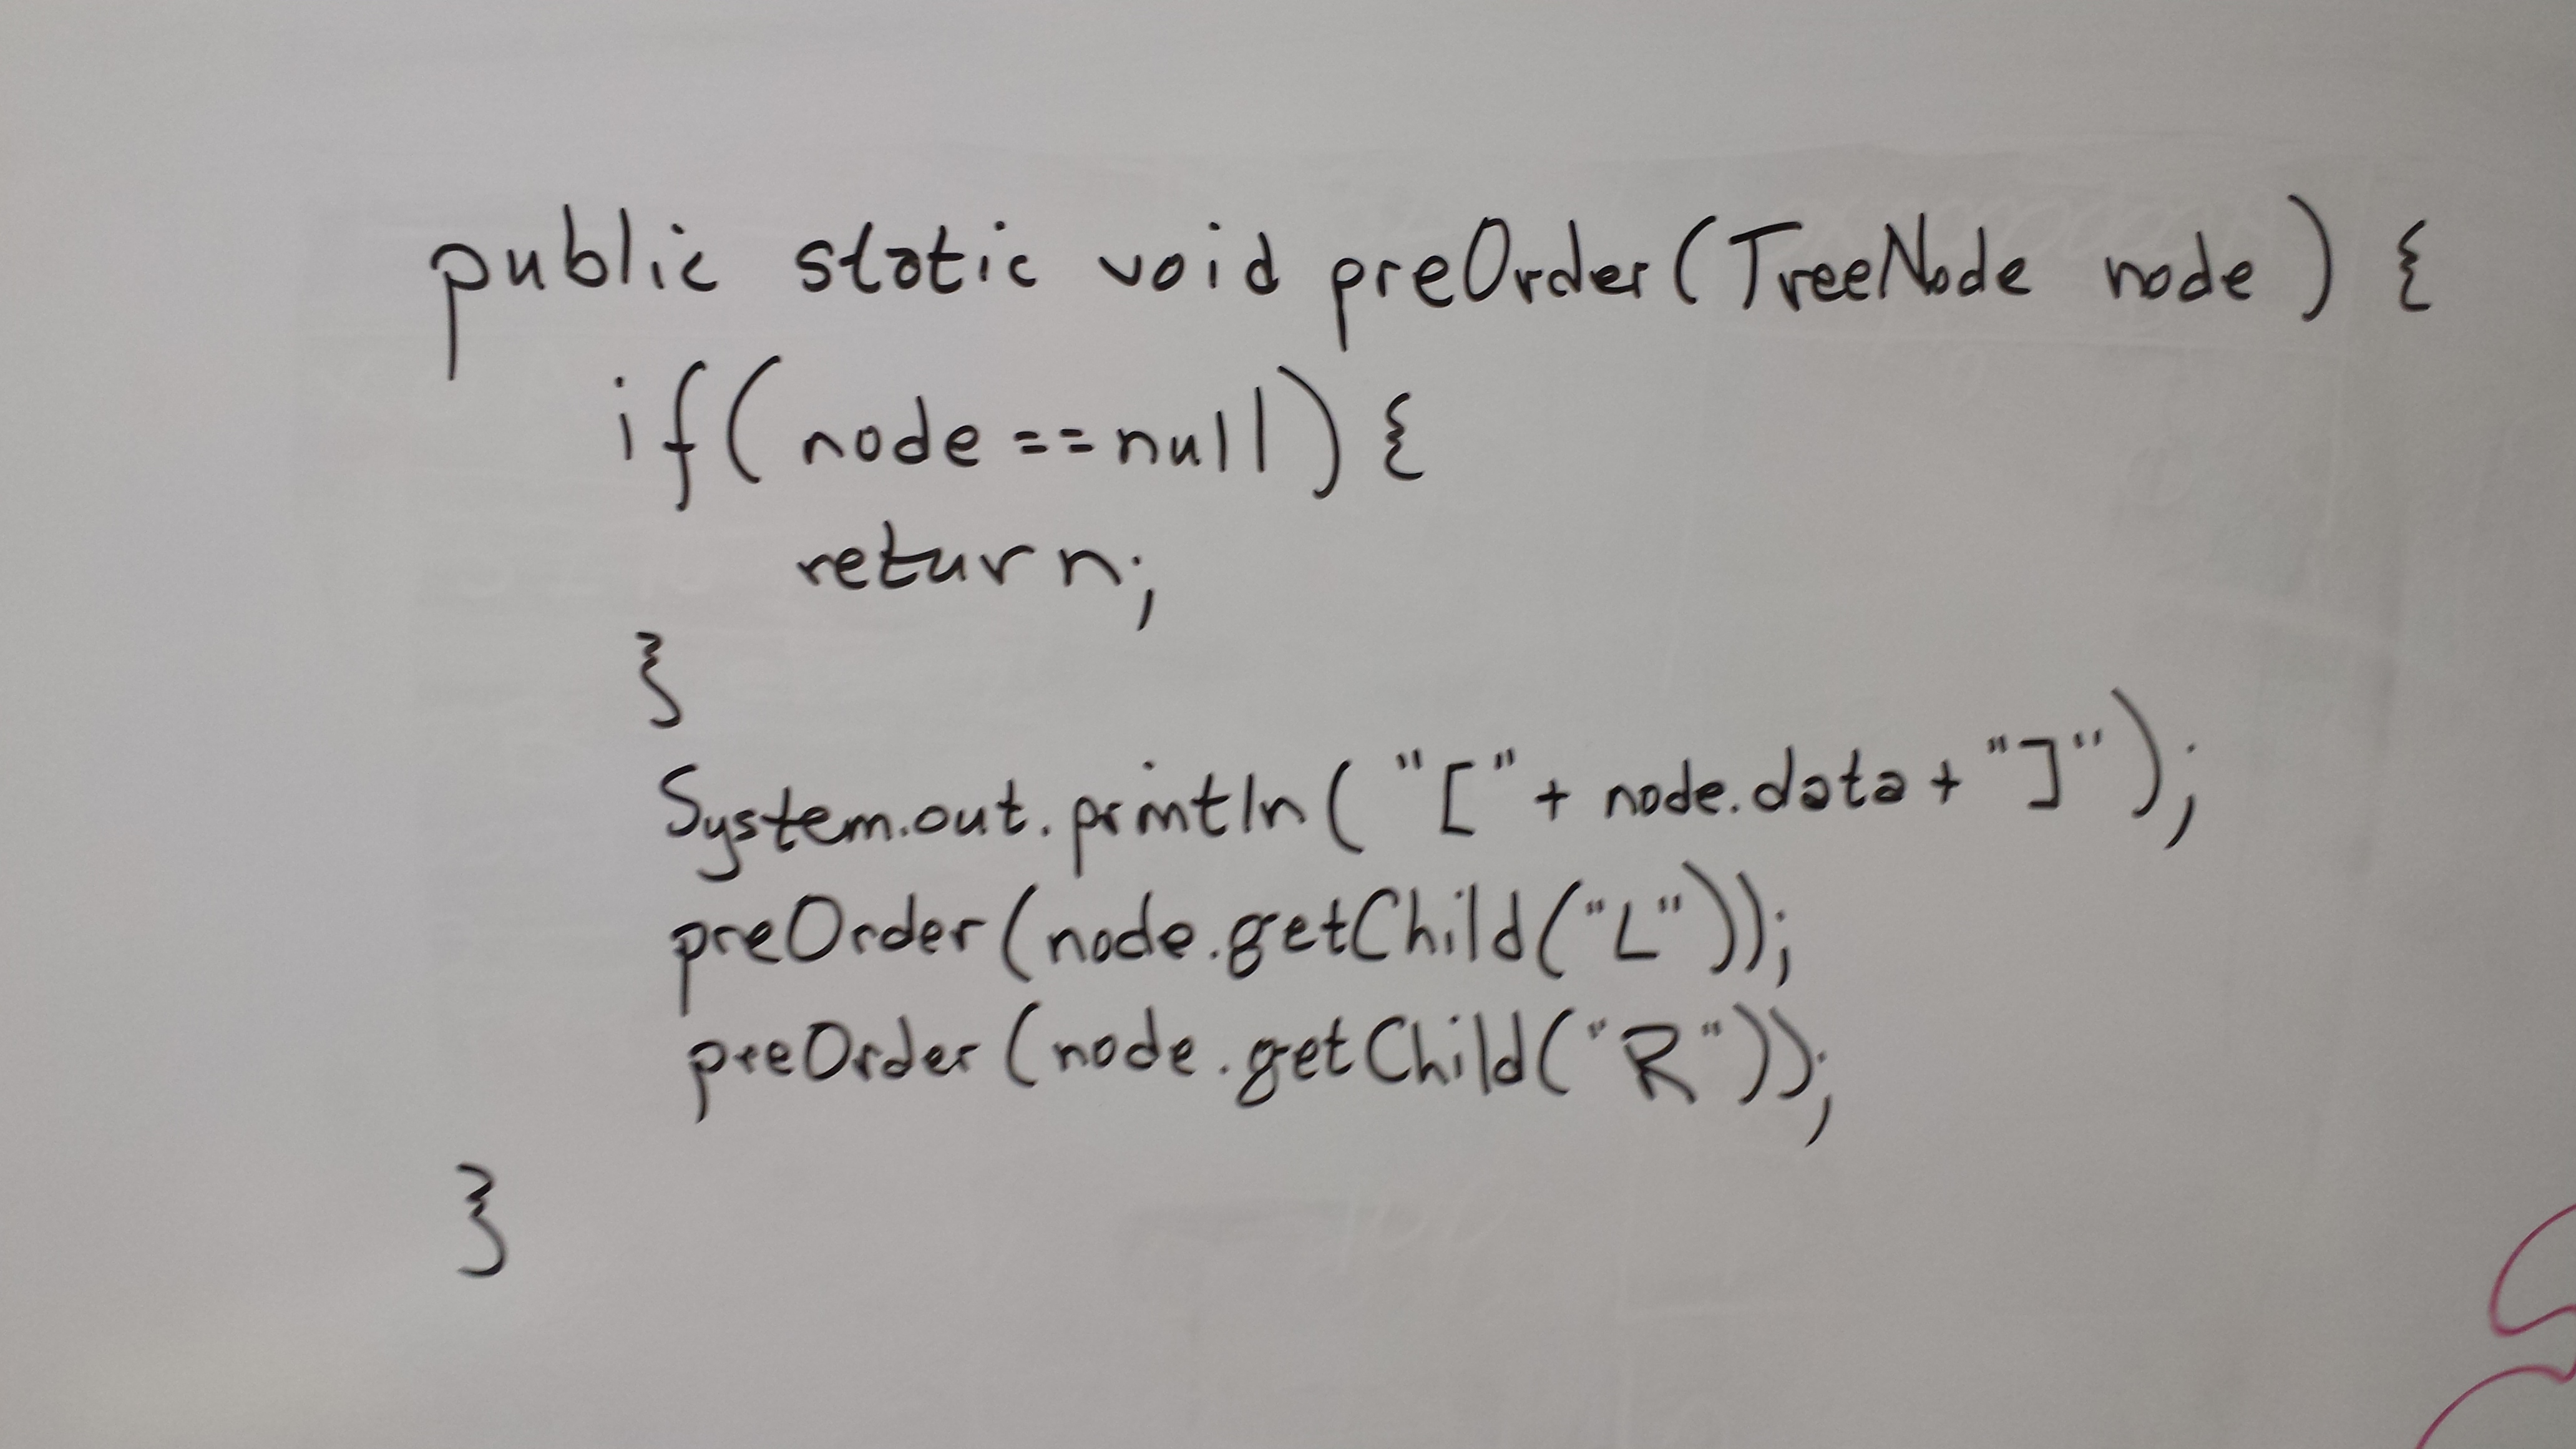 public static void preOrder(TreeNode node) {
if(node==null){
return;
}
System.out.println("["+ node.data + "]");
preOrder(node.getChild("L"));
preOrder(node.getChild("R"));
}